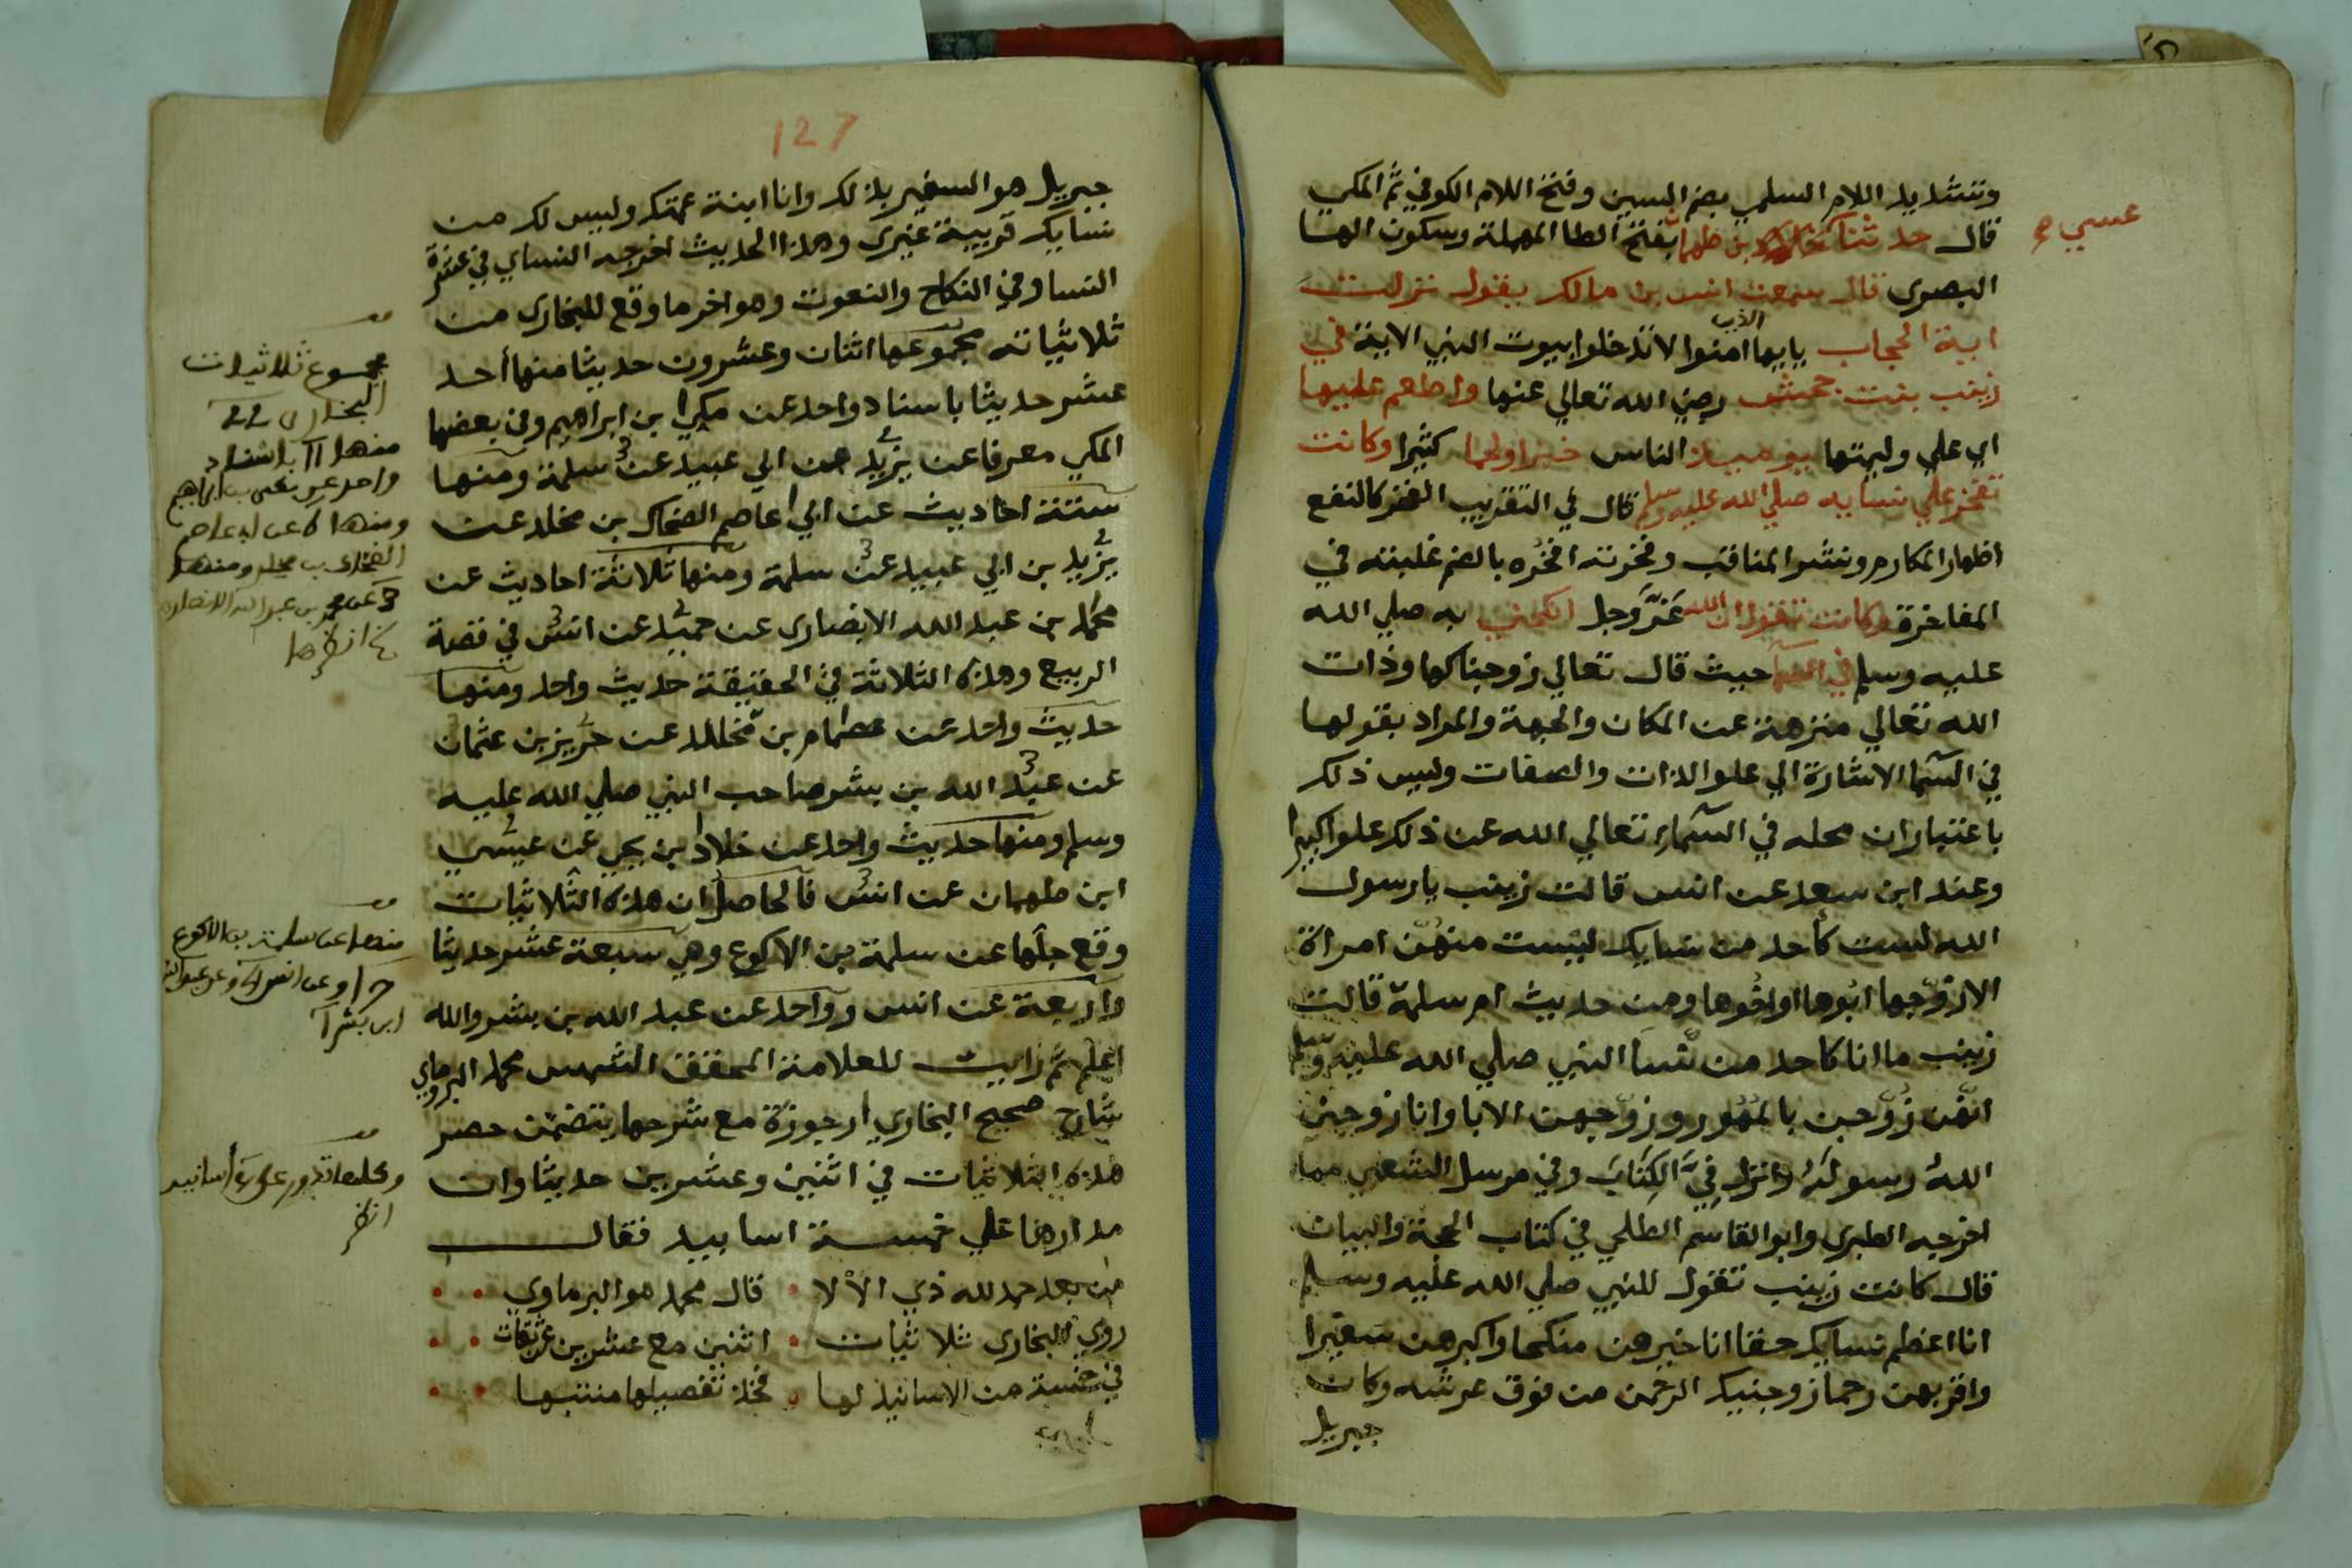 وتشديد اللام السلمي بضم السين وفتح اللام الكوفي ثم المكي
قال حدثنا بن طهمان بفتح الطا المهملة وسكون الها
عيسي صح
البصري قال سمعت انس بن مالك يقول نزلت
اية الحجاب يايها الذين امنوا لا تدخلوا بيوت النبي الاية في
زينب بنت جحش رضي الله تعالي عنها واطعم عليها
اي علي وليمتها يوميذ الناس خبزا ولحما كثيرا وكانت
تفخر علي نسايه صلي الله عليه وسلم قال في التقريب الفخر كالنفع
اظهار المكارم ونشر المناقب وفخرته افخُره بالضم غلبته في
المفاخرة وكانت تقول ان الله عَزَّ وجل انكحني به صلي الله
عليه وسلم في السما حيث قال تعالي زوجناكها وذات
الله تعالي منزهة عن المكان والجهة والمراد بقولها
في السما الاشارة الي علو الذات والصفات وليس ذلك
باعتبار ان محله في السماء تعالي الله عن ذلك علوا كبيرا
وعند ابن سعد عن انس قالت زينب يا رسول
الله لست كأحد من نسايك ليست منهن امراة
الا زوّجها ابُوها او اخُوها ومن حديث ام سلمة قالت
زينب ما انا كاحد من نسا النبي صلي الله عليه وسلم
انهّن زوّجن بالمهُور وزوّجهن الابا وانا زوجني
اللهُ رسولَهُ وانزل فِيَّ الكِتَابَ وفي مرسل الشعبي مما
اخرجه الطبري وابو القاسم الطلحي في كتاب الحجة والبيان
قال كانت زينب تقول للنبي صلي الله عليه وسلم
انا اعظم نسايك حقا انا خيرهن منكحا واكبرهن سفيرا
واقربهن رحما زوجنيك الرحمن من فوق عرشه وكان
جبريل
127
جبريل هو السفير بذلك وانا ابنة عمتك وليس لك من
نسايك قريبة غيري وهذا الحديث اخرجه النساي في عشرة
النسا وفي النكاح والنعوت وهو اخر ما وقع للبخاري من
ثلاثياته مجموعها اثنان وعشرون حديثا منها أحد
عشر حديثا باسناد واحد عن مكي بن ابراهيم وفي بعضها
المكي معرفا عن يزيد عن ابي عبيد عن سلمة ومنها
ستة احاديث عن ابي عاصم الضحاك بن مخلد عن
يزيد بن ابي عبيد عن سلمة ومنها ثلاثة احاديث عن
محمد بن عبد الله الانصاري عن حميد عن انس في قصة
الربيع وهذه الثلاثة في الحقيقة حديث واحد ومنها
حديث واحد عن عصام بن مخلد عن حريز بن عثمان
عن عبد الله بن بشر صاحب النبي صلي الله عليه
وسلم ومنها حديث واحد عن خلاد بن يحيي عن عيسي
ابن طهمان عن انس فالحاصل ان هذه الثلاثيات
وقع جلّها عن سلمة بن الاكوع وهي سبعة عشر حديثا
واربعة عن انس وواحد عن عبد الله بن بشر والله
اعلم ثم رايت للعلامة المحقق الشمس محمد البرماوي
شارح صحيح البخاري ارجوزة مع شرحها يتضمن حصر
هذه الثلاثيات في اثنين وعشرين حديثا وان
مدارها علي خمسة اسانيد فقال
من بعد حمد لله ذي الألا • قال محمد هو البرماوي
روي البخاري ثلاثيات • اثنين مع عشرين
في خمسة من الاسانيذ لها • فخذ تفصيلها منتبها
مجموع ثلاثيات
البخاري ٢٢
منها ١١ باسناد
واحد عن مكي بن ابراهيم
ومنها ٦ عن ابي عاصم
الضحاك بن مخلد ومنها
٣ عن محمد بن عبد الله الانصاري
انظرها
منها عن سلمة بن الاكوع
وعن انس وعن عبد الله
ابن بشر
وكلها تدور علي أسانيد
انظر